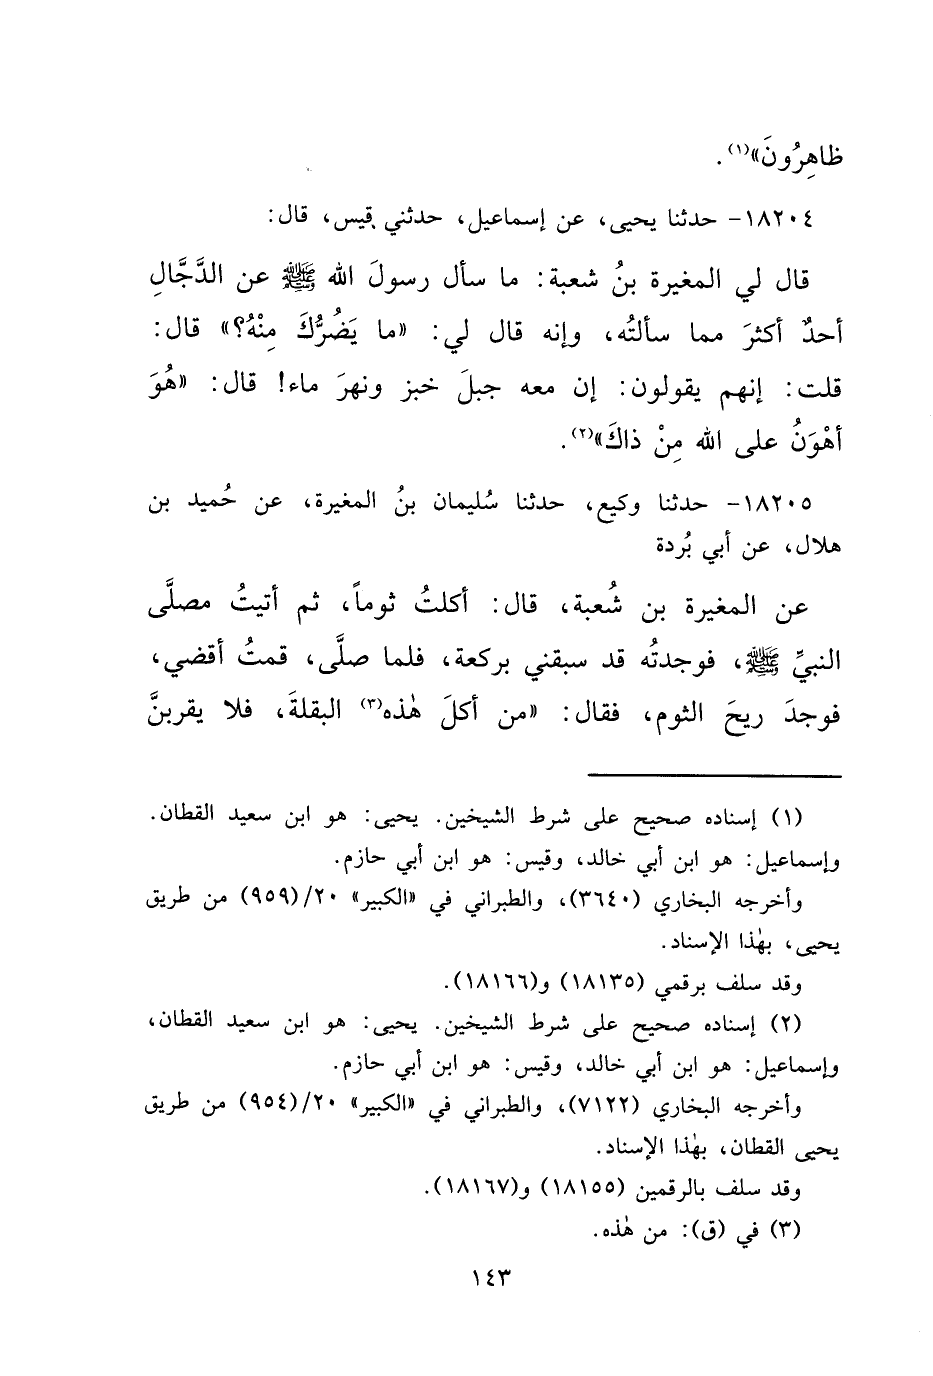 ظاهِرُونَ»(١).
١٨٢٠٤- حدثنا يحيى، عن إسماعيل، حدثني قيس، قال:
قال لي المغيرة بنُ شعبة: ما سأل رسولَ الله ﷺ عن الدَّجَّالِ
أحدٌ أكثرَ مما سألتُه، وإنه قال لي: «ما يَضُرُّكَ مِنْهُ؟» قال:
قلت: إنهم يقولون: إن معه جبلَ خبز ونهرَ ماء! قال: «هُوَ
أهْوَنُ على الله مِنْ ذاكَ»(٢).
١٨٢٠٥- حدثنا وكيع، حدثنا سُليمان بنُ المغيرة، عن حُميد بن
هلال، عن أبي بُردة
عن المغيرة بن شُعبة، قال: أكلتُ ثوماً، ثم أتيتُ مصلَّى
النبيِّ ﷺ، فوجدتُه قد سبقني بركعة، فلما صلَّى، قمتُ أقضي،
فوجدَ ريحَ الثوم، فقال: «من أكلَ هٰذه(٣) البقلةَ، فلا يقربنَّ
(١) إسناده صحيح على شرط الشيخين. يحيى: هو ابن سعيد القطان.
وإسماعيل: هو ابن أبي خالد، وقيس: هو ابن أبي حازم.
وأخرجه البخاري (٣٦٤٠)، والطبراني في «الكبير» ٢٠/(٩٥٩) من طريق
يحيى، بهٰذا الإسناد.
وقد سلف برقمي (١٨١٣٥) و(١٨١٦٦).
(٢) إسناده صحيح على شرط الشيخين. يحيى: هو ابن سعيد القطان،
وإسماعيل: هو ابن أبي خالد، وقيس: هو ابن أبي حازم.
وأخرجه البخاري (٧١٢٢)، والطبراني في «الكبير» ٢٠/(٩٥٤) من طريق
يحيى القطان، بهٰذا الإسناد.
وقد سلف بالرقمين (١٨١٥٥) و(١٨١٦٧).
(٣) في (ق): من هٰذه.
١٤٣